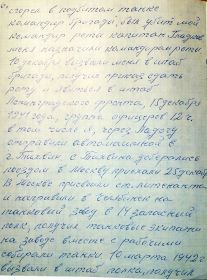 сгорел в подбитом танке
командир бригады, был убит мой
командир роты капитан
меня назначили командиром роты
10 декабря вызвали меня в штаб
бригады, получил приказ сдать
роту и явиться в штаб
Ленинградского фронта, 15 декабря
1941 года, группа офицеров 12 ч.
в том числе я, через Ладогу
отправили автомашиной в
г. Тихвин, с Тихвина добирались
поездом в Москву, приехали 25 декабря
В Москве присвоили ст. лейтенанта
и направили в Челябинск на
танковый завод в 14 запасной
полк, получил танковые экипажи
на заводе вместе с рабочими
собирали танки, 10 марта 1942 г
вызвали в штаб полка, получил